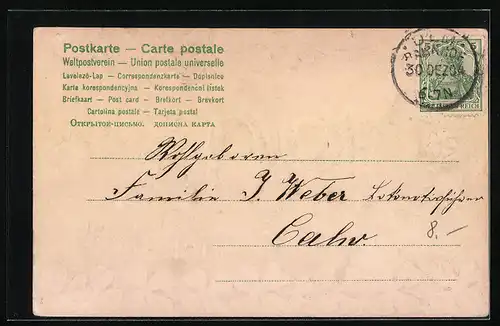 Postkarte — Carte postale
Weltpostverein — Union postale universelle
Levelező-Lap — Correspondenzkarte — Dopisnice
Karta korespondencyjna — Korespondenční lístek
Briefkaart — Post card — Brefkort — Brevkort
Cartolina postale — Tarjeta postal
Открытое-письмо. дописна карта
ULM
30 DEZ 04
6-7N
REICH
Wohlgeboren
Familie J. Weber Lokomotivführer
Calw.
8.-